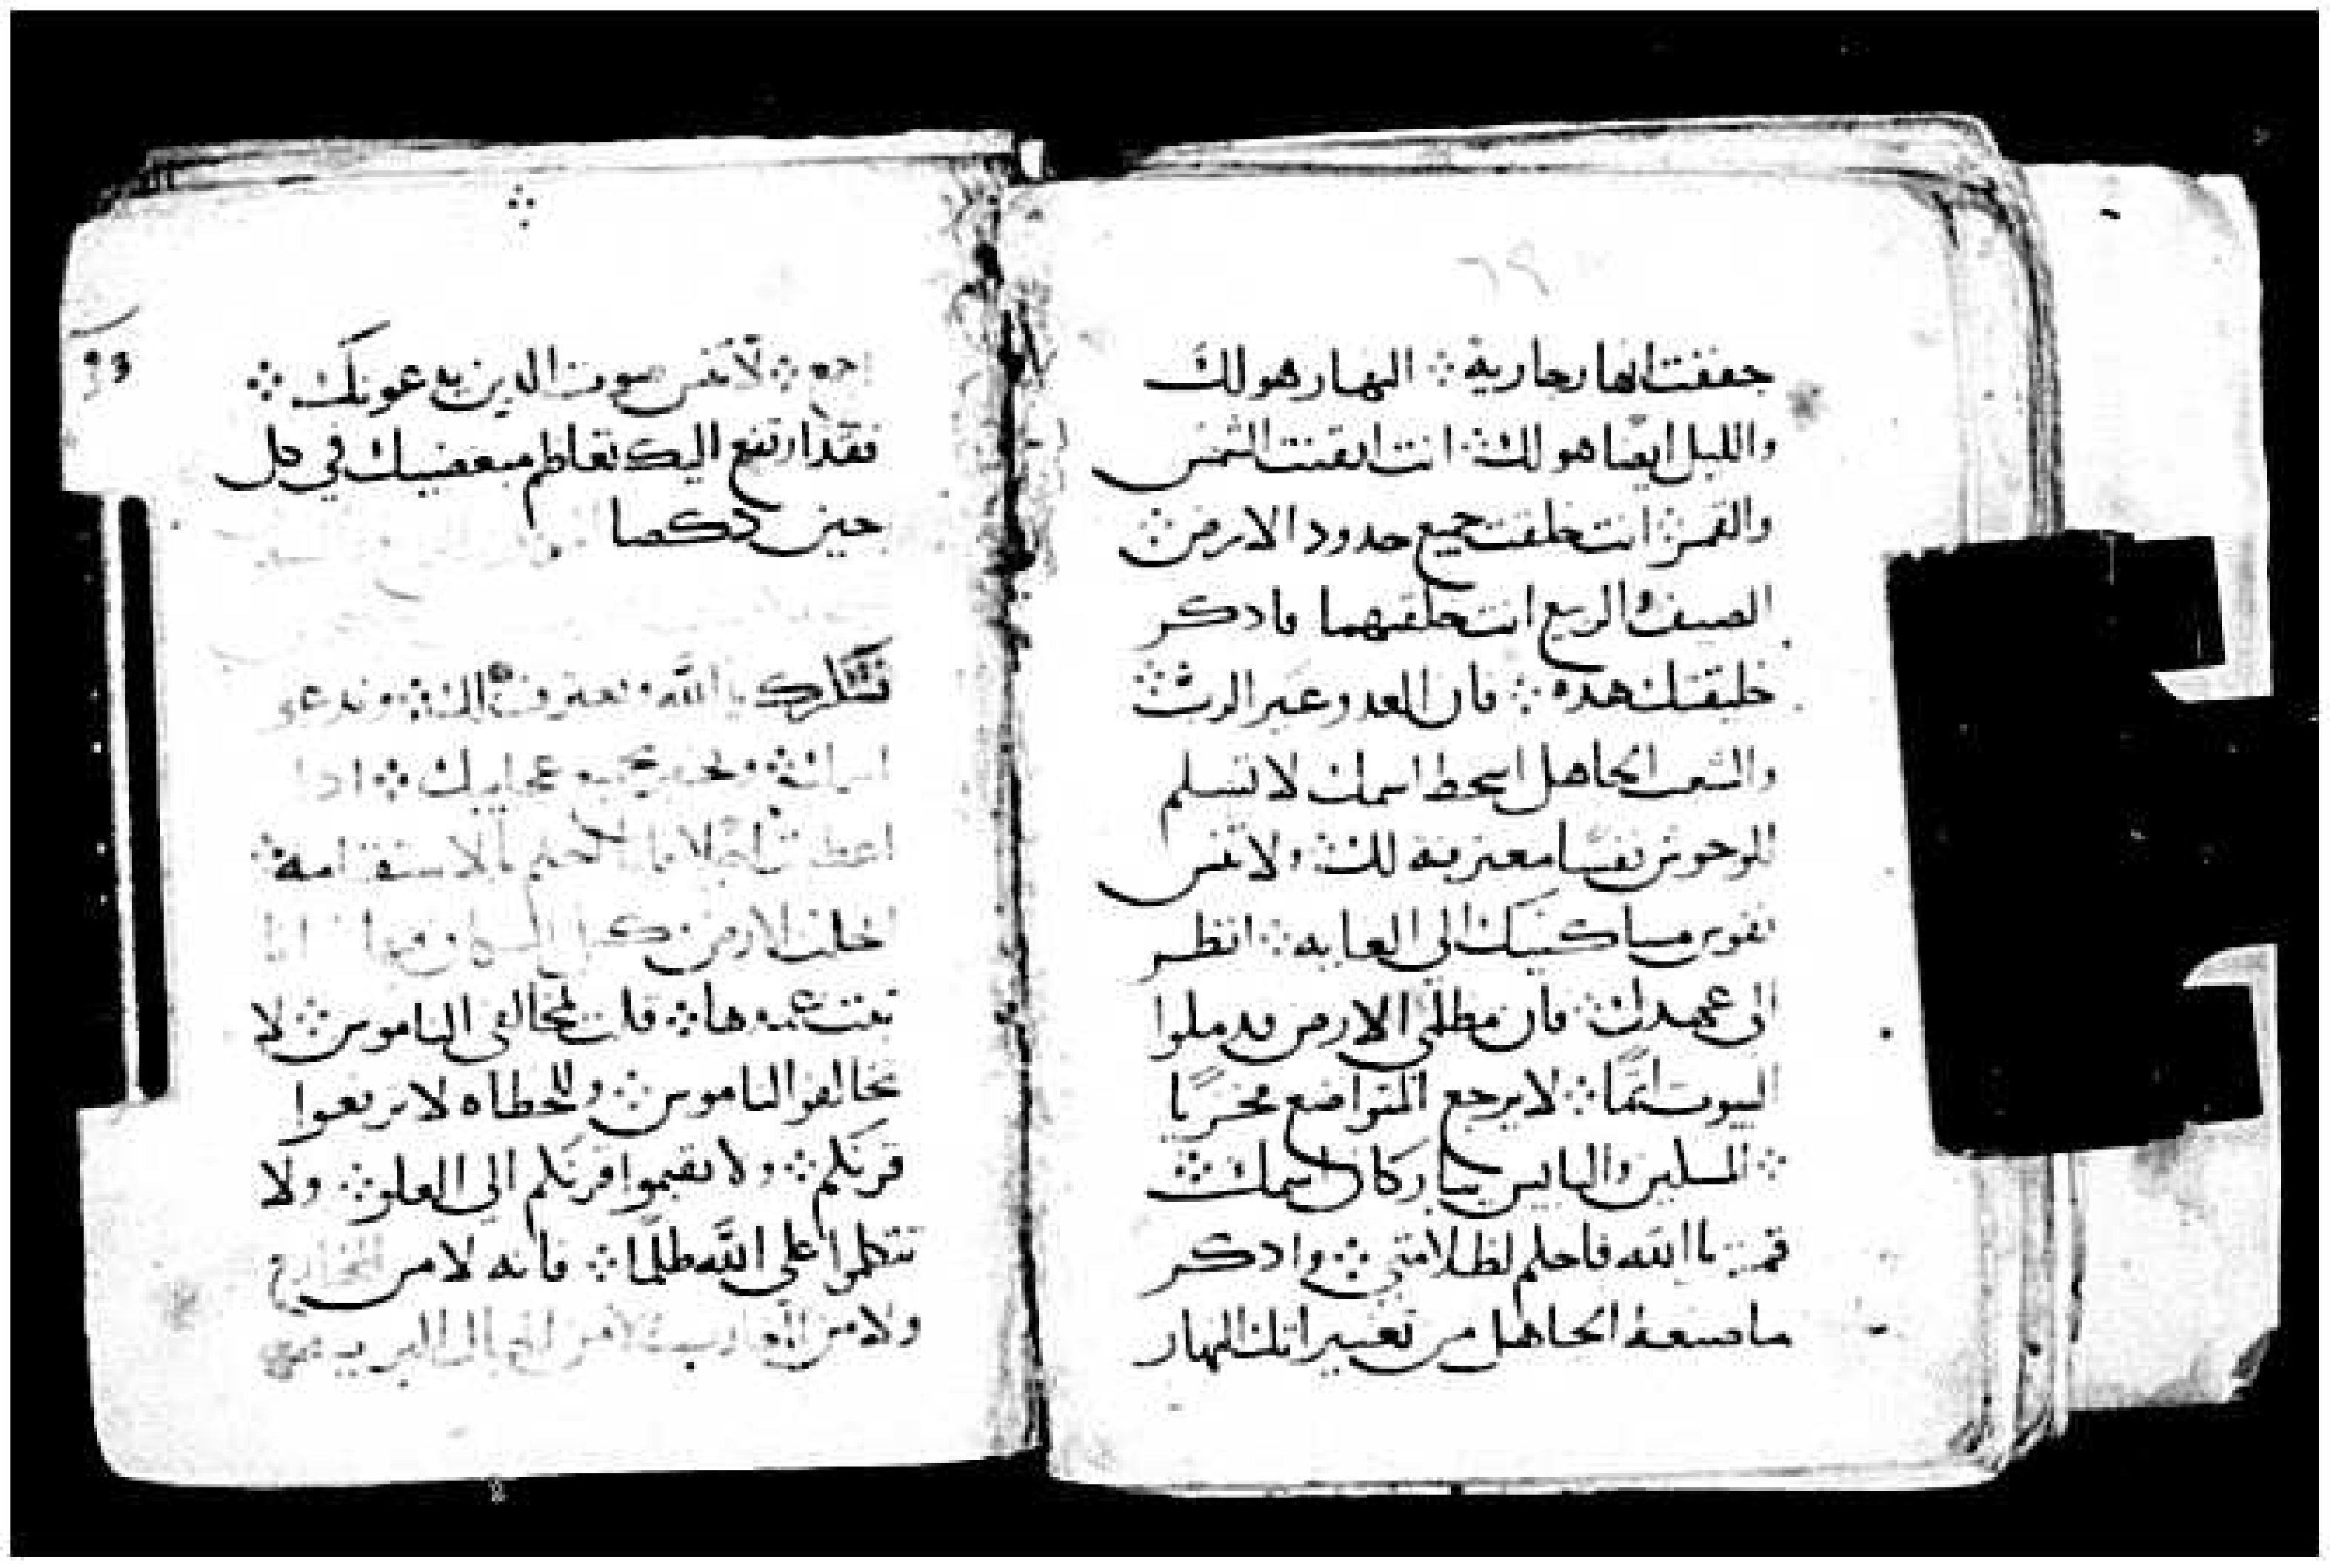 ٦٩
جففت انهار جارية ⁘ النهار هو لك
والليل ايضا هو لك ⁘ انت اتقنت الشمس
والقمر ⁘ انت خلقت جميع حدود الارض ⁘
الصيف والربيع انت خلقتهما فادكر
خليقتك هده ⁘ فان العدو عير الرب ⁘
والشعب الجاهل اسخط اسمك لا تسلم
للوحوش نفسا معترفة لك ⁘ ولا تنس
نفوس مساكنيك الى الغايه ⁘ انظر
الى عهدك ⁘ فان مظلمي الارض قد ملوا
البيوت اثمًا ⁘ لا يرجع المتواضع مخزيا
⁘ المسكين والبايس يباركان اسمك ⁘
قم يا الله فاحكم لظلامتي ⁘ وادكر
ما صنعه الجاهل من تعييراتك النهار
اجمع ⁘ لا تنس صوت الدين يدعونك ⁘
فقد ارتفع اليك تعاظم مبغضيك في كل
حين
نشكرك يا الله ونعترف لك ⁘ وندعو
اسمك ⁘ عجايبك ⁘ ادا
بالاستقامة ⁘
الارض وكل السكان فيها انا
ثبت عمدها ⁘ قلت لمخالفي الناموس ⁘ لا
تخالفوا الناموس ⁘ وللخطاه لا ترفعوا
قرنكم ⁘ ولا تقيموا قرنكم الى العلو ⁘ ولا
تتكلموا على الله ظلمًا ⁘ فانه لا من المخارج
ولا من المغارب ولا من الجبال البرية